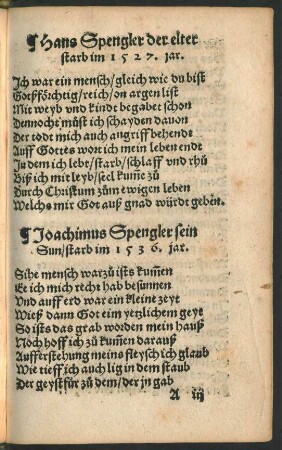 ¶ Hans Spengler der elter
starb im 1527. jar.
Ich war ein mensch/gleich wie du bist
Gotßförchtig/reich/on argen list
Mit weyb vnd kinde begabet schon
Dennocht müst ich schayden dauon
Der todt mich auch angriff behende
Auff Gottes wort ich mein leben endt
Jn dem ich lebt/starb/schlaff vnd rhü
Biß ich mit leyb/seel kume zü
Durch Christum zum ewigen leben
Welchs mir Got auß gnad würdt geben.
¶ Joachimus Spengler sein
Sun/starb im 1536. jar.
Sihe mensch warzü ists kum̃en
Ee ich mich recht hab besunnen
Vnd auff erd war ein kleine zeyt
Wieß dann Got eim yetzlichem geyt
So ists das grab worden mein hauß
Noch hoff ich zü kum̃en darauß
Aufferstehung meins fleysch ich glaub
Wie tieff ich auch lig in dem staub
Der geyst für zü dem/der jn gab
A iij